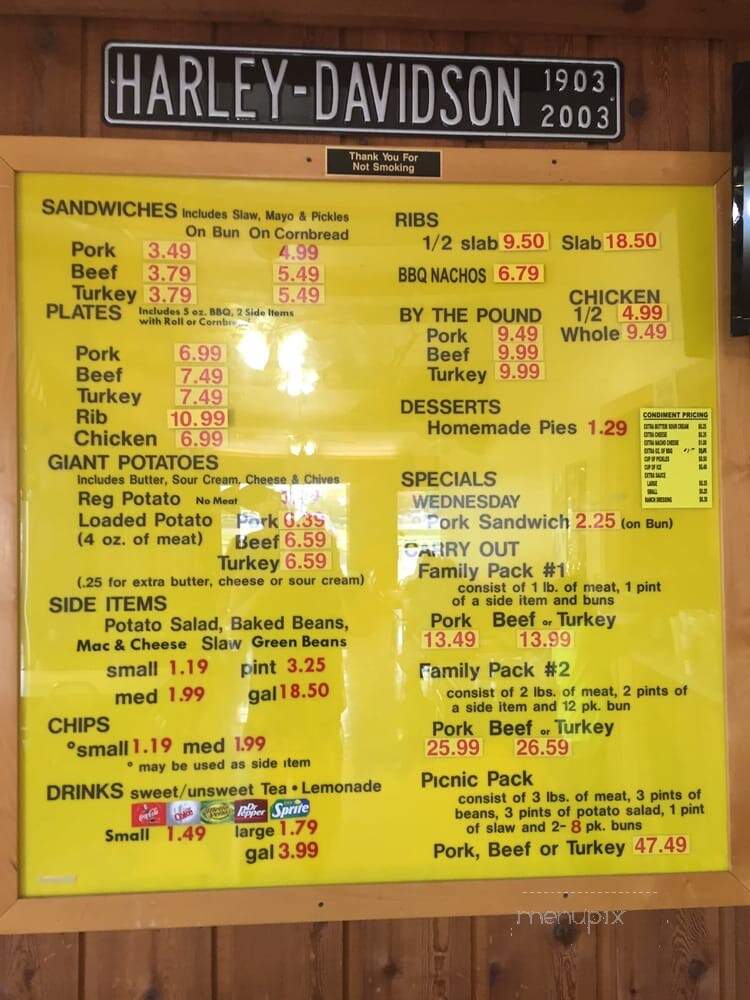 HARLEY-DAVIDSON 1903 2003
Thank You For
Not Smoking
SANDWICHES Includes Slaw, Mayo & Pickles
On Bun On Cornbread
Pork 3.49 4.99
Beef 3.79 5.49
Turkey 3.79 5.49
PLATES Includes 5 oz. BBQ, 2 Side Items
with Roll or Cornbread
Pork 6.99
Beef 7.49
Turkey 7.49
Rib 10.99
Chicken 6.99
GIANT POTATOES
Includes Butter, Sour Cream, Cheese & Chives
Reg Potato No Meat
Loaded Potato Pork 6.39
(4 oz. of meat) Beef 6.59
Turkey 6.59
(.25 for extra butter, cheese or sour cream)
SIDE ITEMS
Potato Salad, Baked Beans,
Mac & Cheese Slaw Green Beans
small 1.19 pint 3.25
med 1.99 gal 18.50
CHIPS
°small 1.19 med 1.99
° may be used as side item
DRINKS sweet/unsweet Tea • Lemonade
Dr Pepper Sprite
Small 1.49 large 1.79
gal 3.99
RIBS
1/2 slab 9.50 Slab 18.50
BBQ NACHOS 6.79
CHICKEN
1/2 4.99
Whole 9.49
BY THE POUND
Pork 9.49
Beef 9.99
Turkey 9.99
DESSERTS
Homemade Pies 1.29
CONDIMENT PRICING
EXTRA BUTTER/SOUR CREAM
EXTRA CHEESE
EXTRA NACHO CHEESE
EXTRA OZ. OF BBQ
CUP OF PICKLES
CUP OF ICE
EXTRA SAUCE
LARGE
SMALL
RANCH DRESSING
SPECIALS
WEDNESDAY
Pork Sandwich 2.25 (on Bun)
CARRY OUT
Family Pack #1
consist of 1 lb. of meat, 1 pint
of a side item and buns
Pork Beef or Turkey
13.49 13.99
Family Pack #2
consist of 2 lbs. of meat, 2 pints of
a side item and 12 pk. bun
Pork Beef or Turkey
25.99 26.59
Picnic Pack
consist of 3 lbs. of meat, 3 pints of
beans, 3 pints of potato salad, 1 pint
of slaw and 2- 8 pk. buns
Pork, Beef or Turkey 47.49
menupix